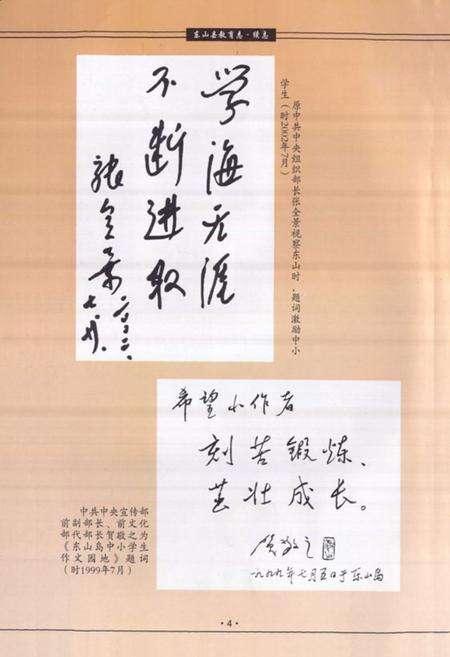 东山县教育志·续志
学海无涯
不断进取
张全景
二〇〇二.
七.
原中共中央组织部长张全景视察东山时,题词激励中小
学生(时2002年7月)
希望小作者
刻苦锻炼、
茁壮成长。
贺敬之
一九九九年七月五日于东山岛
中共中央宣传部
前副部长、前文化
部代部长贺敬之为
《东山岛中小学生
作文园地》题词
(时1999年7月)
·4·